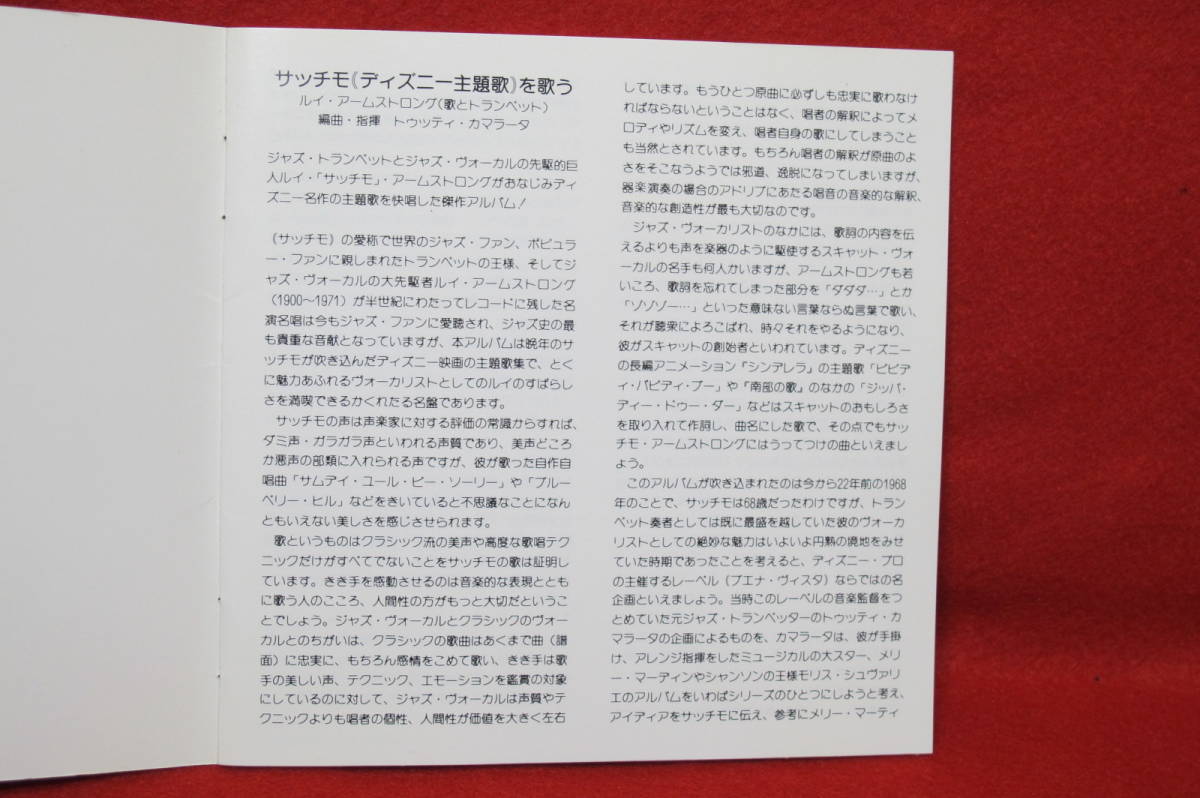 サッチモ《ディズニー主題歌》を歌う
ルイ・アームストロング(歌とトランペット)
編曲・指揮　トゥッティ・カマラータ
ジャズ・トランペットとジャズ・ヴォーカルの先駆的巨
人ルイ・「サッチモ」・アームストロングがおなじみディ
ズニー名作の主題歌を快唱した傑作アルバム！
《サッチモ》の愛称で世界のジャズ・ファン、ポピュラ
ー・ファンに親しまれたトランペットの王様、そしてジ
ャズ・ヴォーカルの大先駆者ルイ・アームストロング
(1900〜1971)が半世紀にわたってレコードに残した名
演名唱は今もジャズ・ファンに愛聴され、ジャズ史の最
も貴重な音献となっていますが、本アルバムは晩年のサ
ッチモが吹き込んだディズニー映画の主題歌集で、とく
に魅力あふれるヴォーカリストとしてのルイのすばらし
さを満喫できるかくれたる名盤であります。
サッチモの声は声楽家に対する評価の常識からすれば、
ダミ声・ガラガラ声といわれる声質であり、美声どころ
か悪声の部類に入れられる声ですが、彼が歌った自作自
唱曲「サムデイ・ユール・ビー・ソーリー」や「ブルー
ベリー・ヒル」などをきいていると不思議なことになん
ともいえない美しさを感じさせられます。
歌というものはクラシック流の美声や高度な歌唱テク
ニックだけがすべてでないことをサッチモの歌は証明し
ています。きき手を感動させるのは音楽的な表現ととも
に歌う人のこころ、人間性の方がもっと大切だというこ
とでしょう。ジャズ・ヴォーカルとクラシックのヴォー
カルとのちがいは、クラシックの歌曲はあくまで曲(譜
面)に忠実に、もちろん感情をこめて歌い、きき手は歌
手の美しい声、テクニック、エモーションを鑑賞の対象
にしているのに対して、ジャズ・ヴォーカルは声質やテ
クニックよりも唱者の個性、人間性が価値を大きく左右
しています。もうひとつ原曲に必ずしも忠実に歌わなけ
ればならないということはなく、唱者の解釈によってメ
ロディやリズムを変え、唱者自身の歌にしてしまうこと
も当然とされています。もちろん唱者の解釈が原曲のよ
さをそこなうようでは邪道、逸脱になってしまいますが、
器楽演奏の場合のアドリブにあたる唱音の音楽的な解釈、
音楽的な創造性が最も大切なのです。
ジャズ・ヴォーカリストのなかには、歌詞の内容を伝
えるよりも声を楽器のように駆使するスキャット・ヴォ
ーカルの名手も何人かいますが、アームストロングも若
いころ、歌詞を忘れてしまった部分を「ダダダ…」とか
「ゾゾゾー…」といった意味ない言葉ならぬ言葉で歌い、
それが聴衆によろこばれ、時々それをやるようになり、
彼がスキャットの創始者といわれています。ディズニー
の長編アニメーション『シンデレラ』の主題歌「ビビデ
ィ・バビディ・ブー」や『南部の歌』のなかの「ジッパ・
ディー・ドゥー・ダー」などはスキャットのおもしろさ
を取り入れて作詞し、曲名にした歌で、その点でもサッ
チモ・アームストロングにはうってつけの曲といえまし
ょう。
このアルバムが吹き込まれたのは今から22年前の1968
年のことで、サッチモは68歳だったわけですが、トラン
ペット奏者としては既に最盛を越していた彼のヴォーカ
リストとしての絶妙な魅力はいよいよ円熟の境地をみせ
ていた時期であったことを考えると、ディズニー・プロ
の主催するレーベル(ブエナ・ヴィスタ)ならではの名
企画といえましょう。当時このレーベルの音楽監督をつ
とめていた元ジャズ・トランペッターのトゥッティ・カ
マラータの企画によるものを、カマラータは、彼が手掛
け、アレンジ指揮をしたミュージカルの大スター、メリ
ー・マーティンやシャンソンの王様モリス・シュヴァリ
エのアルバムをいわばシリーズのひとつにしようと考え、
アイディアをサッチモに伝え、参考にメリー・マーティ